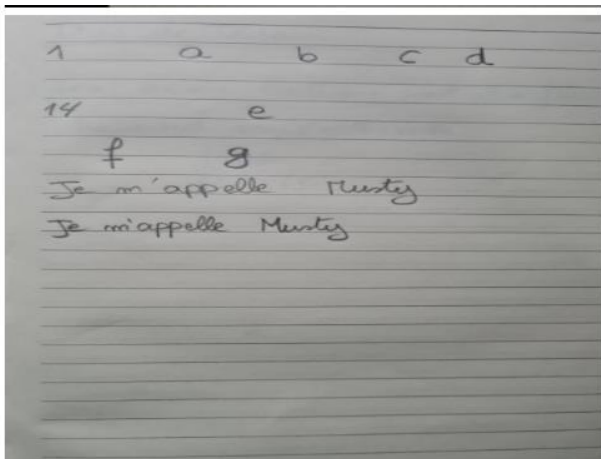 1 a b c d
14 e
f g
Je m'appelle Musty
Je m'appelle Musty